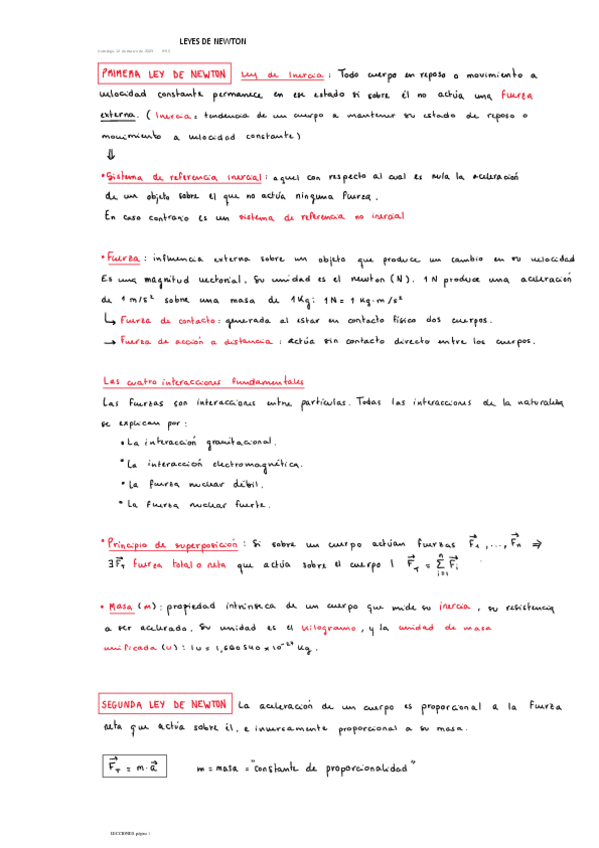 LEYES DE NEWTON
PRIMERA LEY DE NEWTON Ley de Inercia: Todo cuerpo en reposo o movimiento a
velocidad constante permanece en ese estado si sobre él no actúa una fuerza
externa. (Inercia = tendencia de un cuerpo a mantener su estado de reposo o
movimiento a velocidad constante)
⇓
* Sistema de referencia inercial: aquel con respecto al cual es nula la aceleración
de un objeto sobre el que no actúa ninguna fuerza.
En caso contrario es un sistema de referencia no inercial
* Fuerza: influencia externa sobre un objeto que produce un cambio en su velocidad
Es una magnitud vectorial. Su unidad es el newton (N). 1N produce una aceleración
de 1 m/s² sobre una masa de 1Kg: 1N = 1 Kg·m/s²
↳ Fuerza de contacto: generada al estar en contacto físico dos cuerpos.
→ Fuerza de acción a distancia: actúa sin contacto directo entre los cuerpos.
Las cuatro interacciones fundamentales
Las fuerzas son interacciones entre partículas. Todas las interacciones de la naturaleza
se explican por:
• La interacción gravitacional.
• La interacción electromagnética.
• La fuerza nuclear débil.
• La fuerza nuclear fuerte.
* Principio de superposición: Si sobre un cuerpo actúan fuerzas F⃗₁, ..., F⃗ₙ ⇒
∃ F⃗_T fuerza total o neta que actúa sobre el cuerpo | F⃗_T = Σⁿᵢ₌₁ F⃗ᵢ
* Masa (m): propiedad intrínseca de un cuerpo que mide su inercia, su resistencia
a ser acelerado. Su unidad es el kilogramo, y la unidad de masa
unificada (u): 1u = 1,660540 × 10⁻²⁷ Kg.
SEGUNDA LEY DE NEWTON La aceleración de un cuerpo es proporcional a la fuerza
neta que actúa sobre él, e inversamente proporcional a su masa.
F⃗_T = m·a⃗ m = masa = "constante de proporcionalidad"
SECCIONES página 1